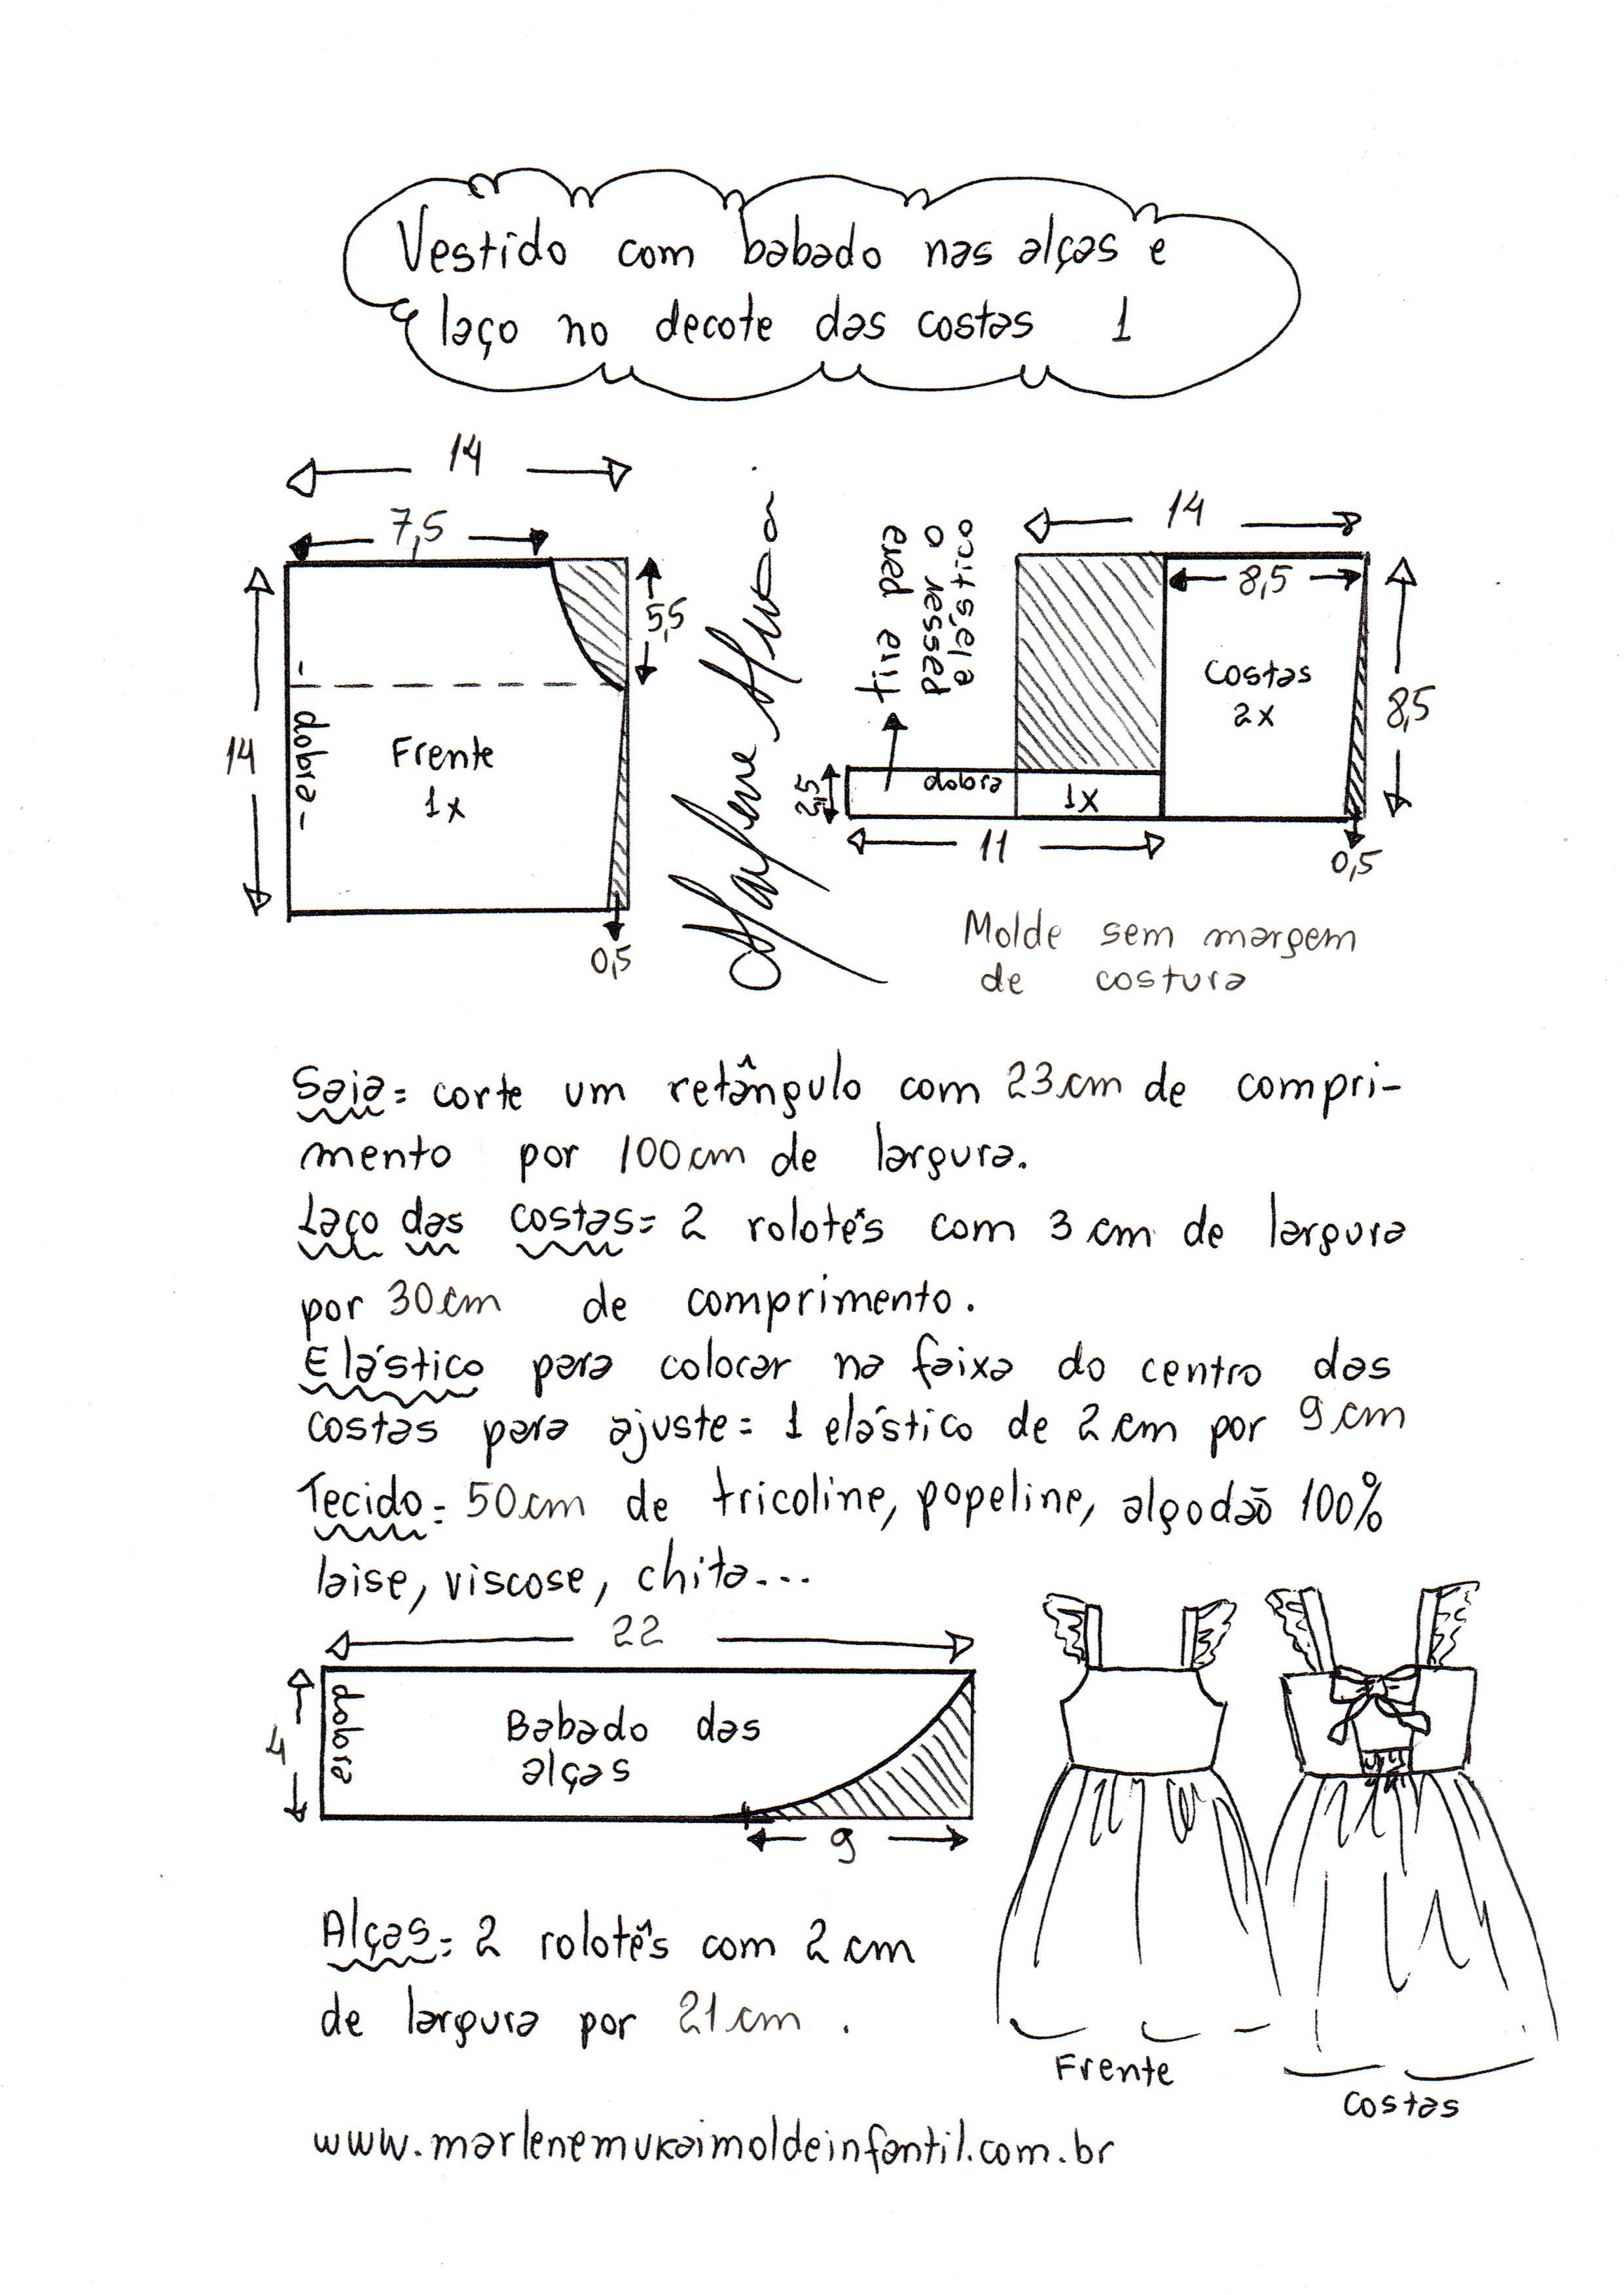 Vestido com babado nas alças e
laço no decote das costas 1
14
7,5
5,5
14
dobra
Frente
1x
0,5
Marlene Mukai
tira para
passar o
elástico
14
8,5
Costas
2x
8,5
2,5
dobra
1x
11
0,5
Molde sem margem
de costura
Saia = corte um retângulo com 23cm de compri-
mento por 100cm de largura.
Laço das costas = 2 rolotês com 3 cm de largura
por 30cm de comprimento.
Elástico para colocar na faixa do centro das
costas para ajuste = 1 elástico de 2 cm por 9 cm
Tecido = 50cm de tricoline, popeline, algodão 100%
laise, viscose, chita...
22
4
dobra
Babado das
alças
9
Alças = 2 rolotês com 2 cm
de largura por 21cm .
Frente
Costas
www.marlenemukaimoldeinfantil.com.br